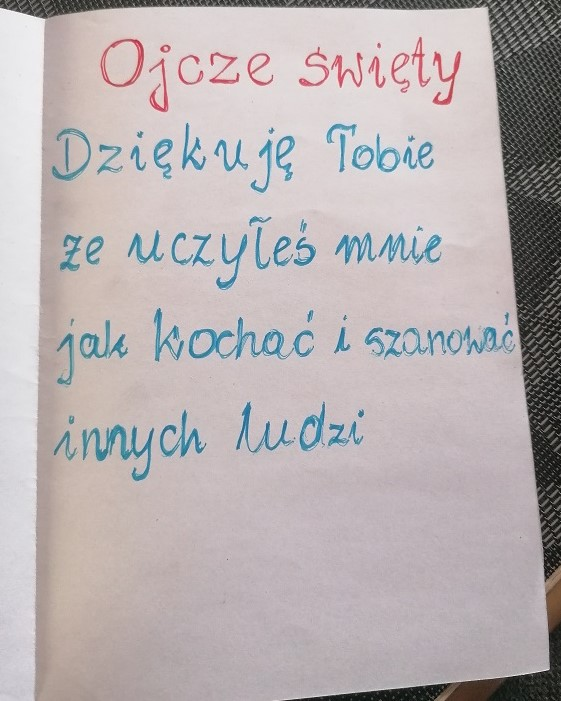 Ojcze święty
Dziękuję Tobie
że uczyłeś mnie
jak kochać i szanować
innych ludzi